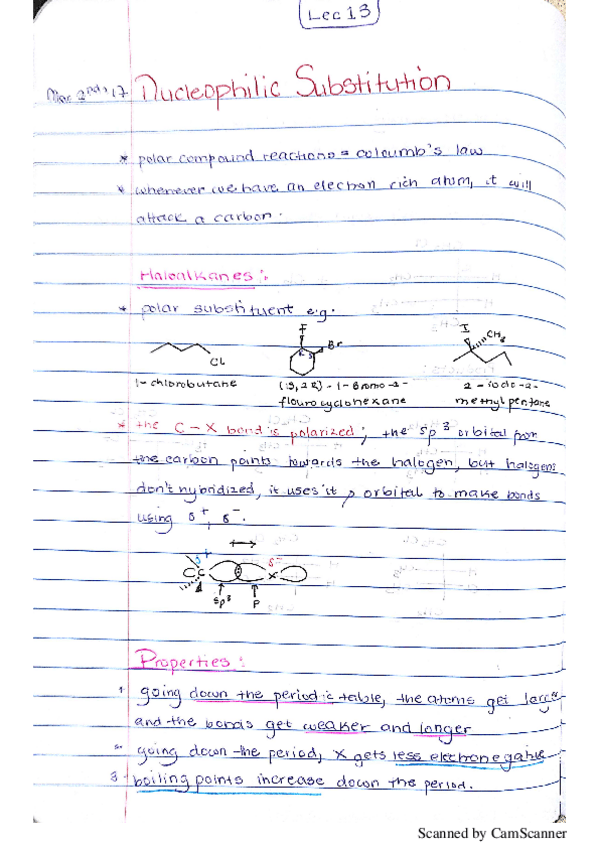 Lec 13
Mar 2nd, 17 Nucleophilic Substitution
* polar compound reactions = coloumb's law
* whenever we have an electron rich atom, it will
attack a carbon.
Haloalkanes:
* polar substituent e.g.
F
Br
R
I
CH3
Cl
1-chlorobutane
(1S,2R)-1-Bromo-2-
flourocyclohexane
2-iodo-2-
methylpentane
* the C-X bond is polarized; the sp3 orbital from
the carbon points towards the halogen, but halogens
don't hybridized, it uses it p orbital to make bonds
using δ+, δ-.
δ+
δ-
C
X
sp3
P
Properties:
1 going down the periodic table, the atoms get larger
and the bonds get weaker and longer
2. going down the period, X gets less electronegative
3 boiling points increase down the period.
Scanned by CamScanner